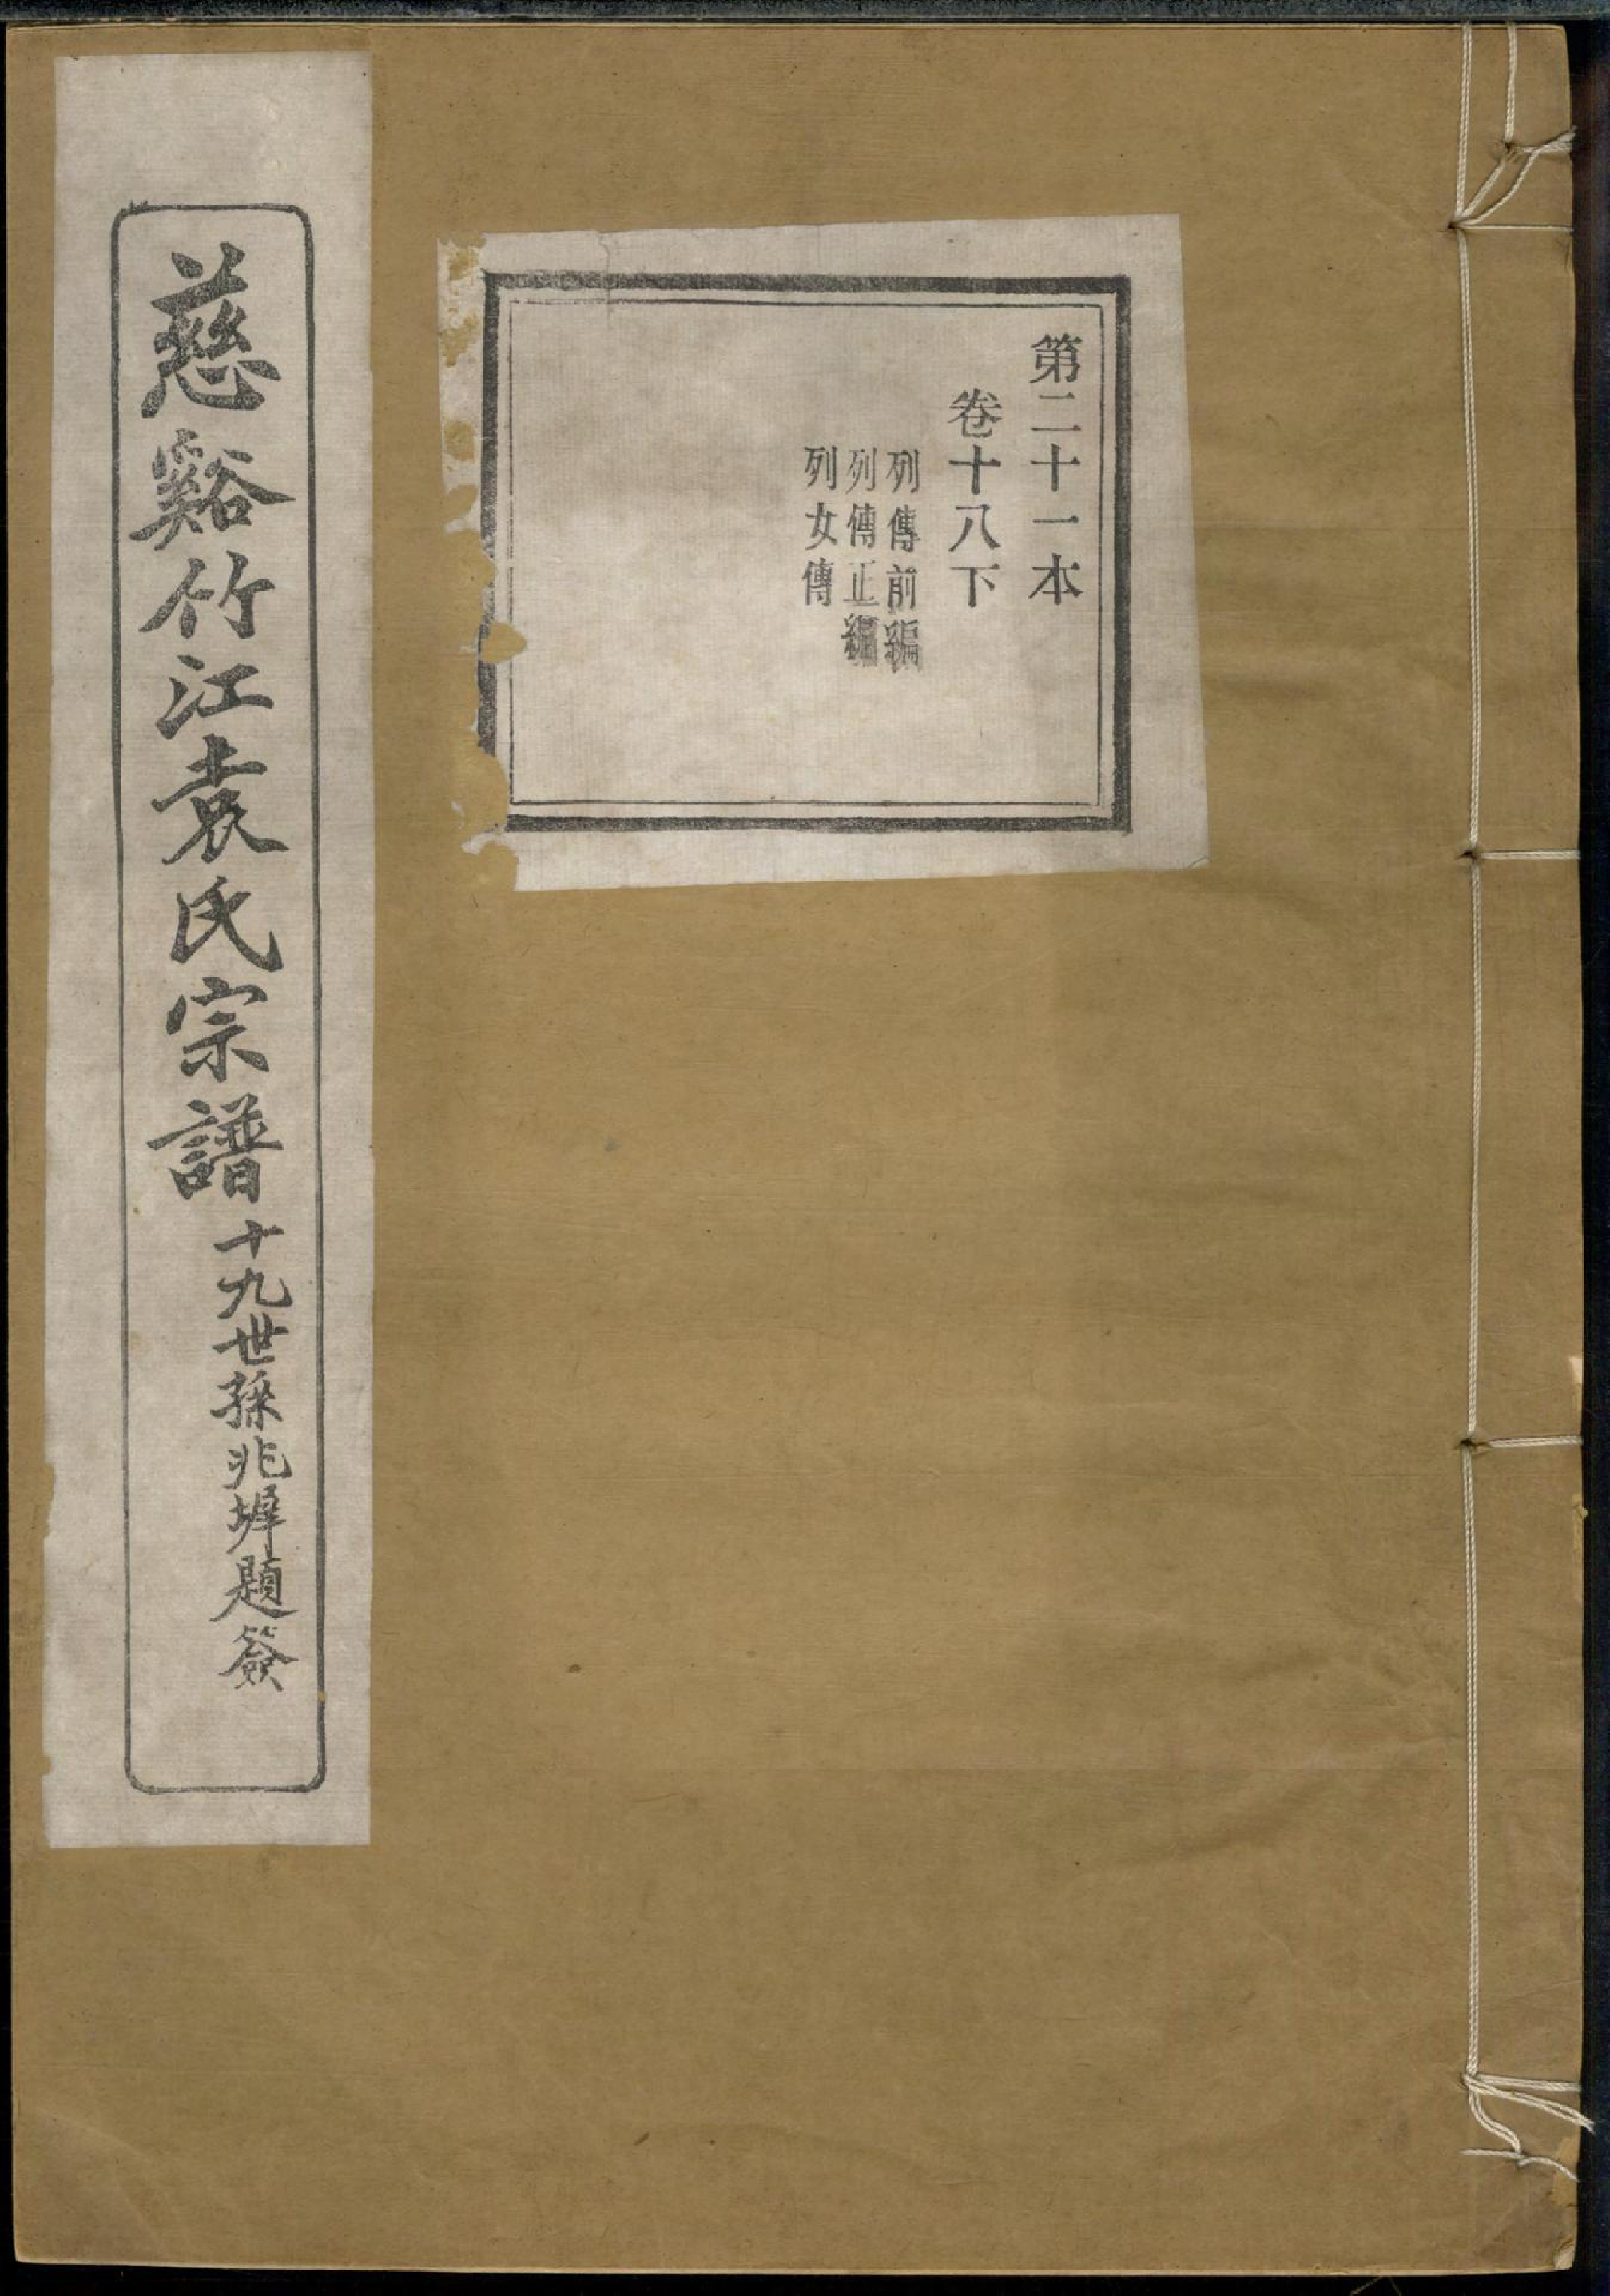 第二十一本
卷十八下
列傳前編
列傳正編
列女傳
慈谿竹江袁氏宗譜
十九世孫兆墀題簽